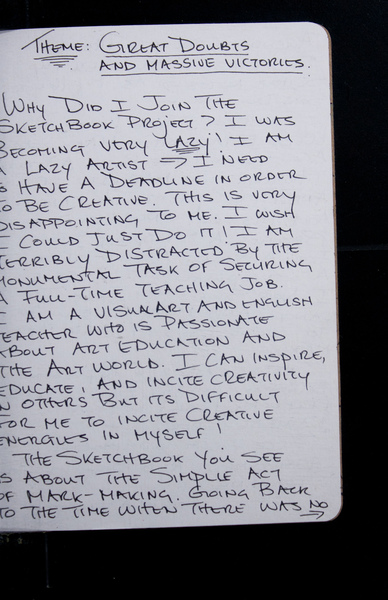 THEME: GREAT DOUBTS
AND MASSIVE VICTORIES.
WHY DID I JOIN THE
SKETCHBOOK PROJECT? I WAS
BECOMING VERY LAZY! I AM
A LAZY ARTIST → I NEED
TO HAVE A DEADLINE IN ORDER
TO BE CREATIVE. THIS IS VERY
DISAPPOINTING TO ME. I WISH
I COULD JUST DO IT! I AM
TERRIBLY DISTRACTED BY THE
MONUMENTAL TASK OF SECURING
A FULL-TIME TEACHING JOB.
I AM A VISUAL ART AND ENGLISH
TEACHER WHO IS PASSIONATE
ABOUT ART EDUCATION AND
THE ART WORLD. I CAN INSPIRE,
EDUCATE, AND INCITE CREATIVITY
IN OTHERS BUT ITS DIFFICULT
FOR ME TO INCITE CREATIVE
ENERGIES IN MYSELF!
THE SKETCHBOOK YOU SEE
IS ABOUT THE SIMPLE ACT
OF MARK-MAKING. GOING BACK
TO THE TIME WHEN THERE WAS NO →